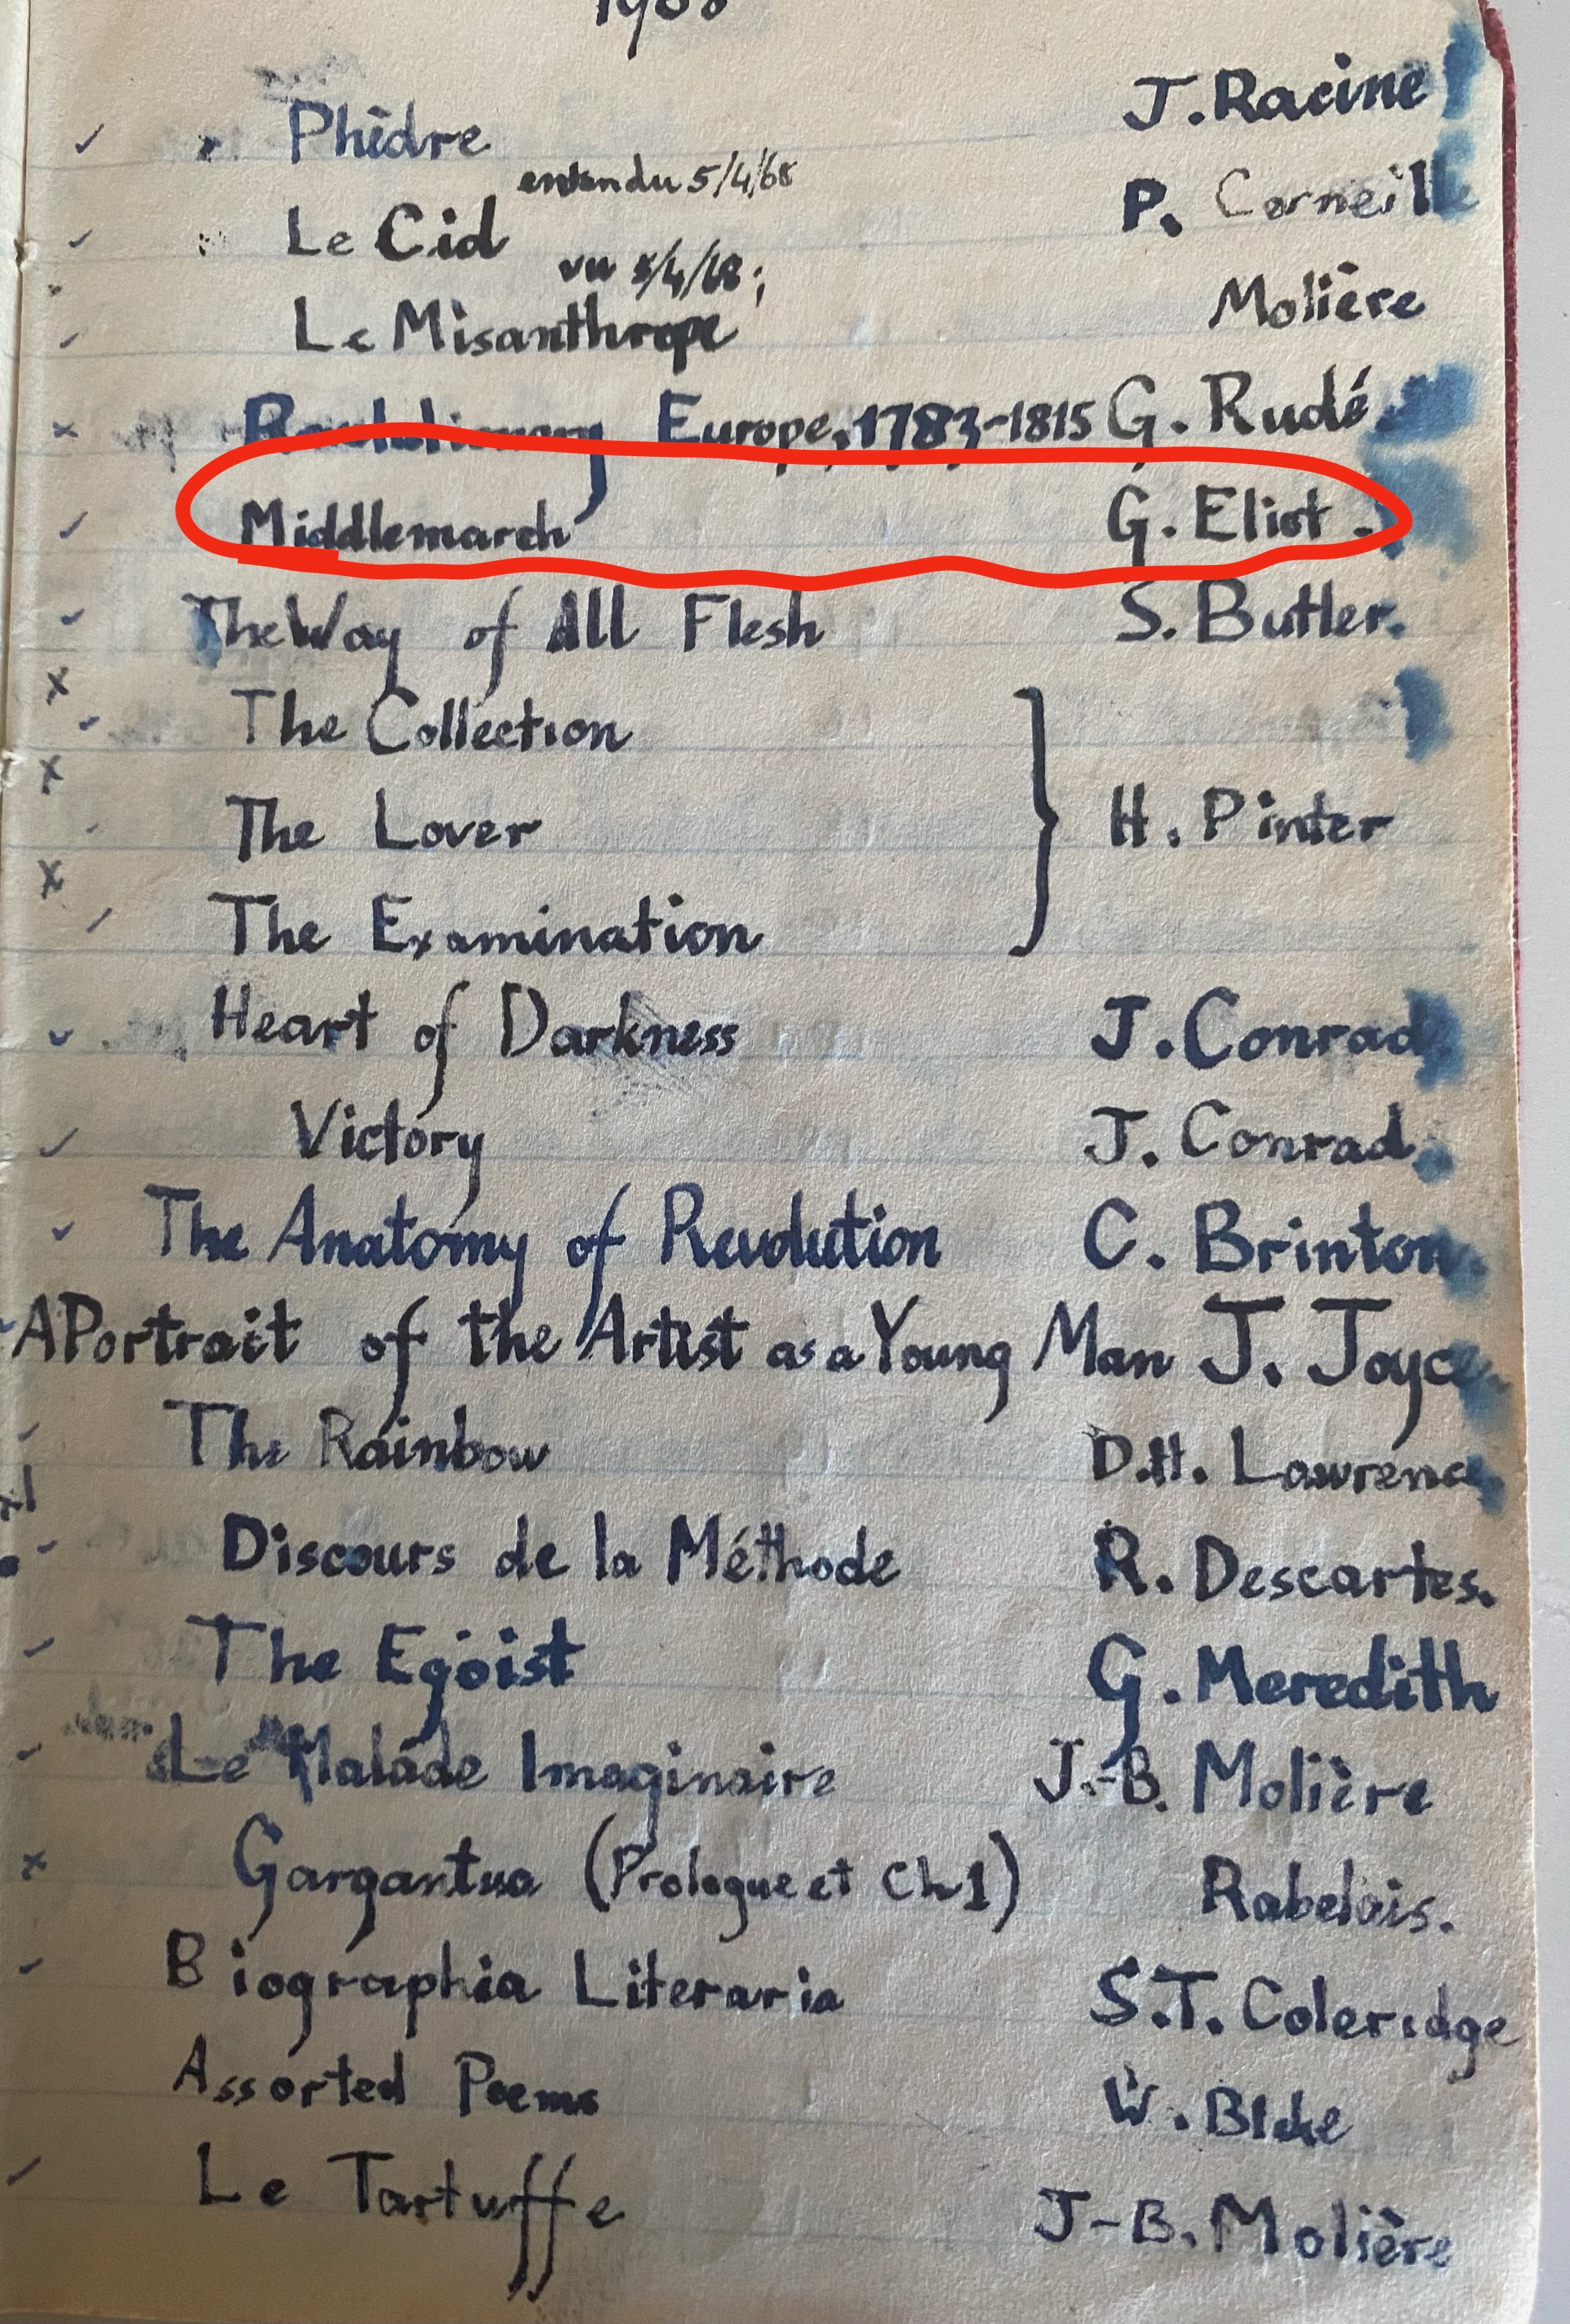 1968
Phèdre J. Racine
entendu 5/4/68
Le Cid P. Corneille
vu 5/4/68;
Le Misanthrope Molière
Revolutionary Europe, 1783-1815 G. Rudé
Middlemarch G. Eliot.
The Way of All Flesh S. Butler.
The Collection
The Lover } H. Pinter
The Examination
Heart of Darkness J. Conrad
Victory J. Conrad
The Anatomy of Revolution C. Brinton
A Portrait of the Artist as a Young Man J. Joyce
The Rainbow D.H. Lawrence
Discours de la Méthode R. Descartes.
The Egoist G. Meredith
Le Malade Imaginaire J.-B. Molière
Gargantua (Prologue et Ch 1) Rabelais.
Biographia Literaria S.T. Coleridge
Assorted Poems W. Blake
Le Tartuffe J-B. Molière